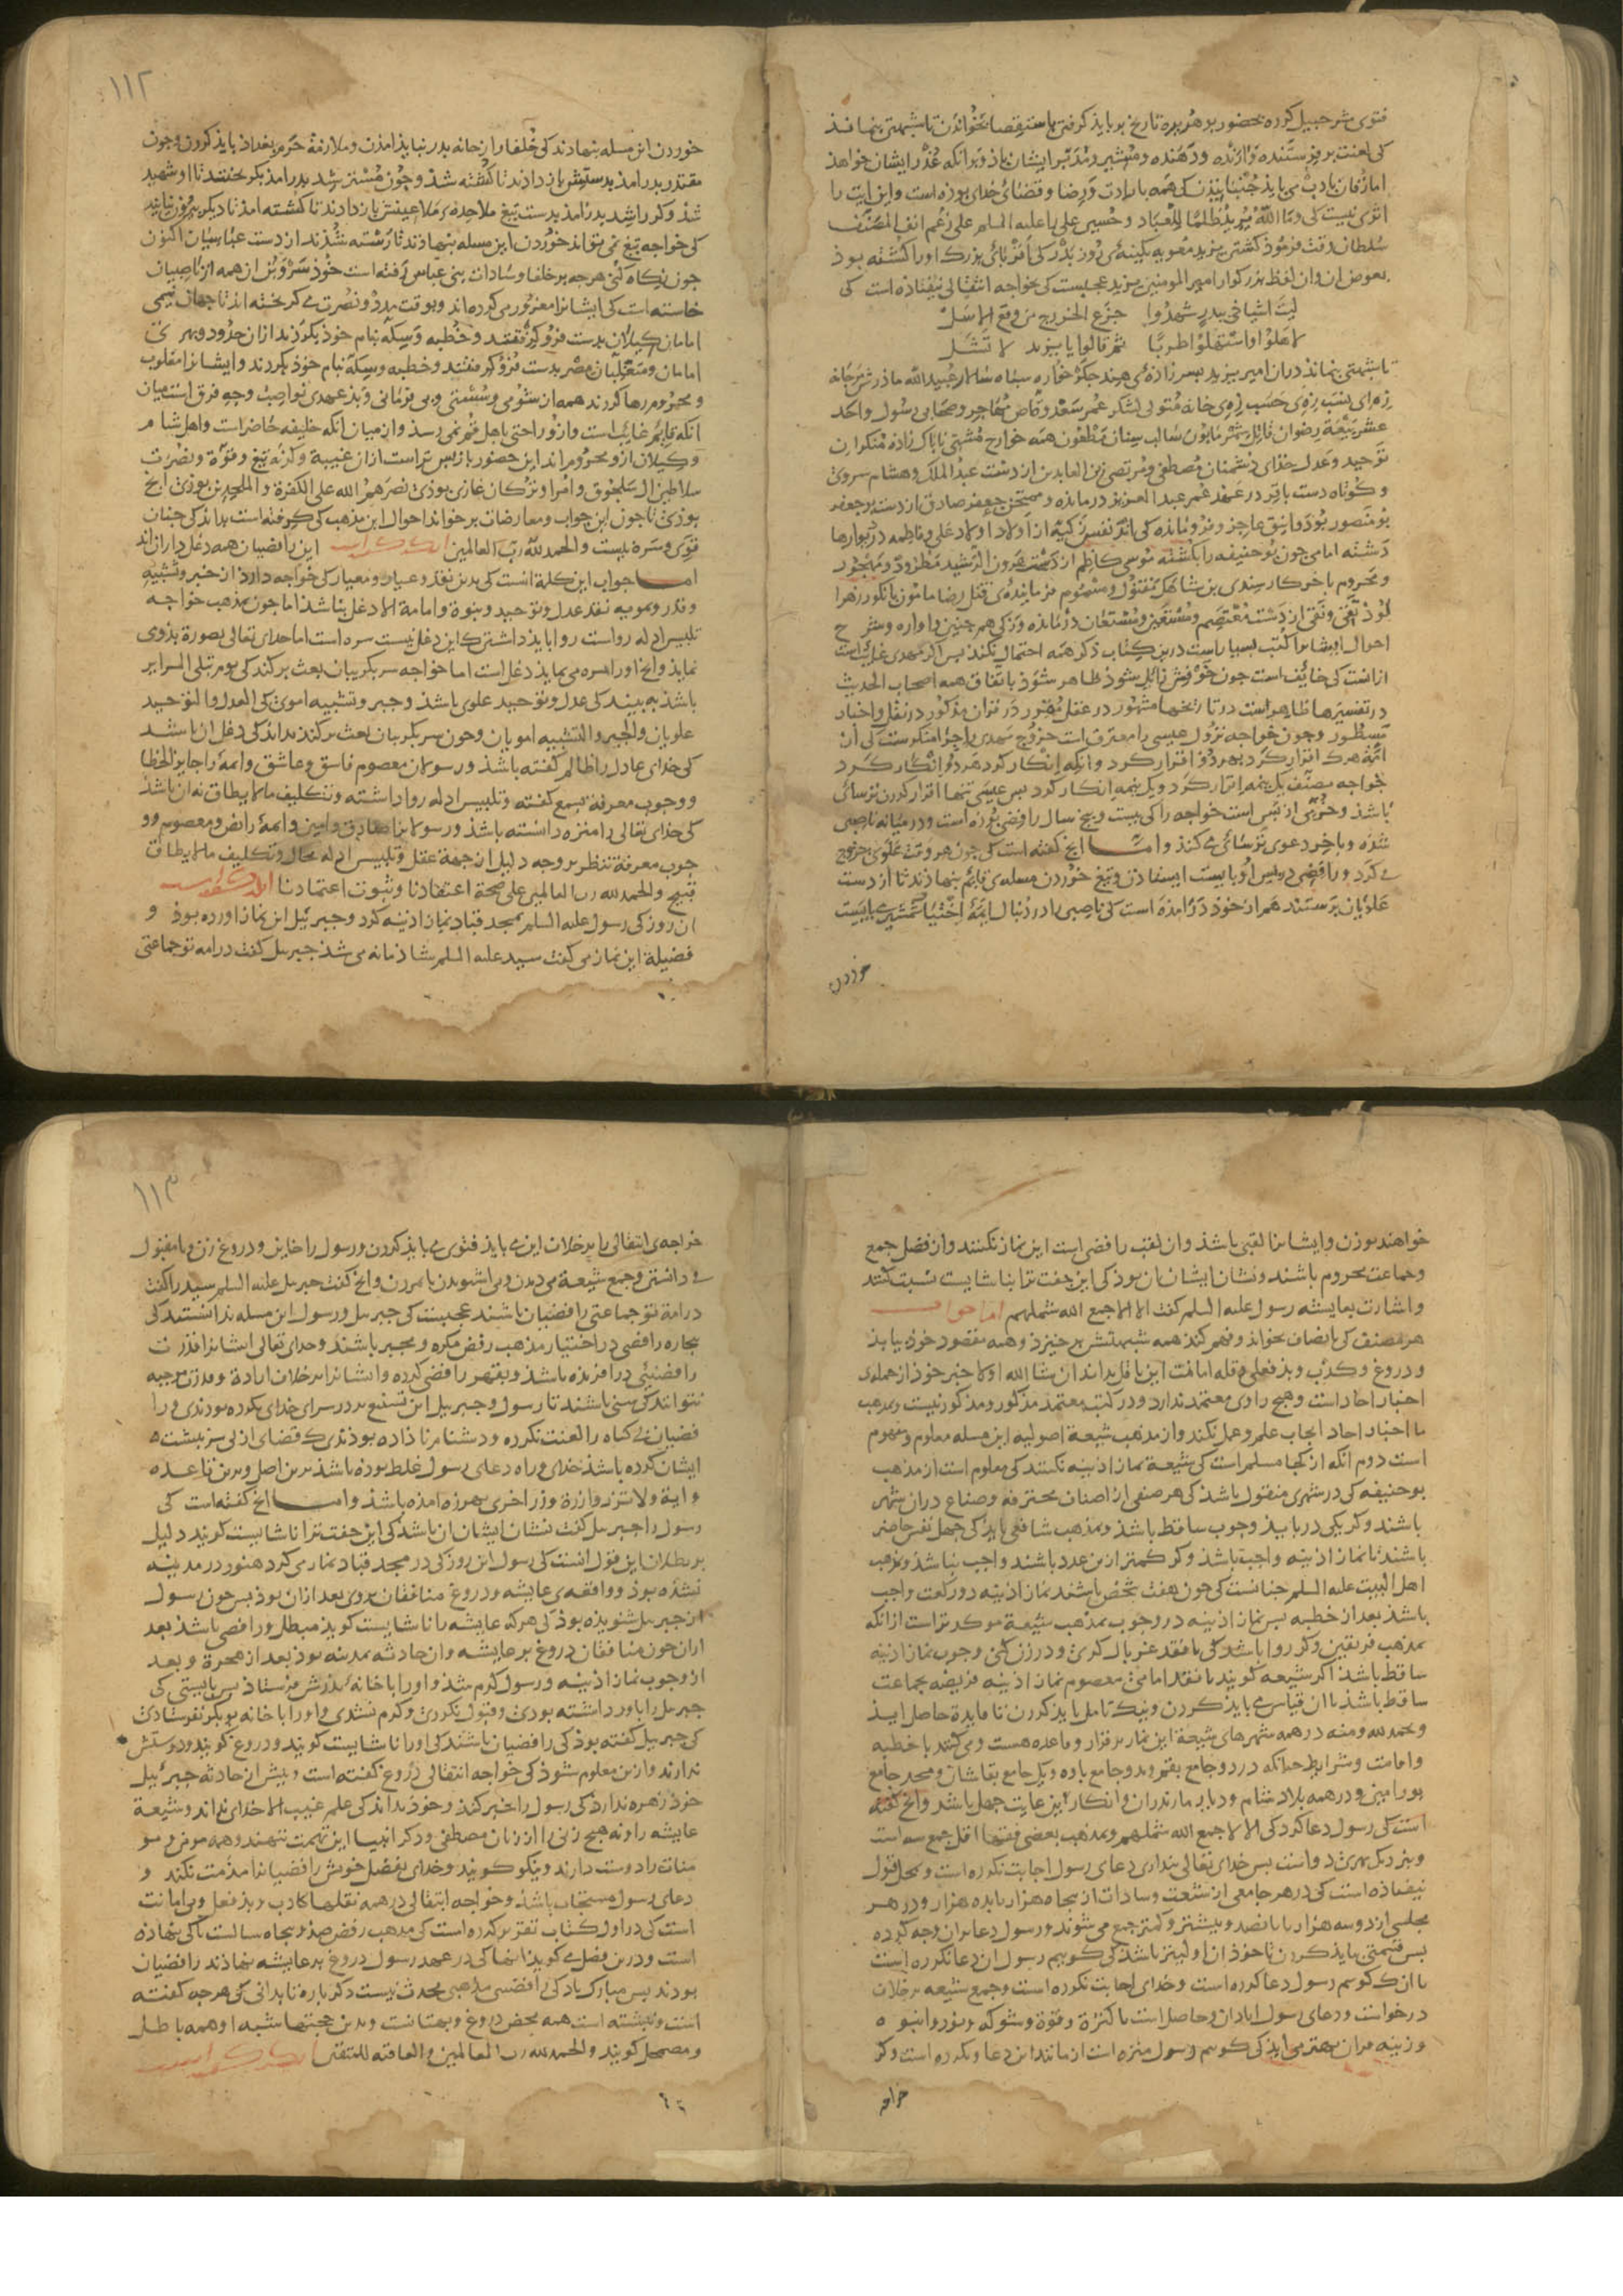 فتوی شرحبیل کرده بحضور بوهریره تاریخ بر باید گرفتن باستقصا بخواندن تا شبهتی بنماند
کی لعنت بر فرستنده و آرنده و دهنده و مشیر و مدبر ایشان باد و بدانکه عذر ایشان خواهد
اتری نیست کی وما الله یرید ظلما للعباد و حسین علی را علیه السلم علی رغم انف المصنف
سلطان وقت فرمود کشتن یزید معویه بکینه‌ی روز بدر کی اقربای بزرگ او را کشته بود
بعوض آن و آن لفظ بزرگوار امیر المومنین یزید عجبست کی بخواجه انتقالی نیفتاده است کی
لیت اشیاخی ببدر شهدوا جزع الخزرج من وقع الاسل
لاهلوا واستهلوا طربا ثم قالوا یا یزید لا تشل
تا شبهتی بنماند در آن امیر یزید پسر زاده‌ی هند جگر خواره سپاه سالار عبید الله مادرش مرجانه
توحید و عدل خدای دشمنان مصطفی و مرتضی زین العابدین از دست عبد الملک و هشام مروی
و کوتاه دست باقر در عهد عمر عبد العزیز در مانده و ممتحن جعفر صادق از دست بو جعفر
دشنه امامی چون بو حنیفه را بکشته موسی کاظم از دست هرون الرشید مطرود و مهجور
احوال ایشان را کتب بسیارست درین کتاب ذکر همه احتمال نکند پس اگر مهدی غایب است
از آنست کی خایف است چون خوفش زایل شود ظاهر شود باتفاق همه اصحاب الحدیث
در تفسیرها ظاهرست در تاریخها مشهور در عقل مقرر در قران مذکور در نقل و اخبار
مسطور و چون خواجه نزول عیسی را معترف است خروج مهدی را چرا منکرست کی آن
ائمه هرک اقرار کرد بهر دو اقرار کرد و انکه انکار کرد هر دو انکار کرد
خواجه مصنف یک نیمه اقرار کرد و یک نیمه انکار کرد پس عیسی تنها اقرار کردن ترسائی
باشد و خوبی از پس است خواجه را کی بیست و پنج سال رافضی بوده است و در میانه ناصبی
شده و باخر دعوی ترسائی می‌کند و اما آنچ گفته است کی چون هر وقت علوی خروج
می کرد و رافضی در پس او بایست ایستادن و تیغ خوردن مسله‌ی قایم بنهادند تا از دست
علویان برستند همراز خود در آمده است کی ناصبی را در دنبال ایمه اختیار شمشیر بایست
خوردن
۱۱۲
خوردن این مسله بنهادند کی خلفا را از خانه بدر نباید آمدن و ملازمة حرم بغداد باید کردن و چون
شد و کر راشد بدر آمد بدست تیغ ملاحده‌ی ملاعینش باز دادند تا کشته آمد تا دیگر بیرون نیاید
کی خواجه تیغ نمی تواند خوردن این مسله بنهادند تا رسته شدند از دست عباسیان اکنون
چون نگاه کنی هرچه بر خلفا و سادات بنی عباس رفته است خود سر و بن آن همه از ناصبیان
خاسته است کی ایشانرا مغرور می کرده‌اند و بوقت مدد و نصرت می گریخته‌اند تا جهان نیمی
امامان گیلان بدست فرو گرفتند و خطبه و سکه بنام خود بکردند از آن حدود و بهری
امامان و متغلبان مصر بدست فرو گرفتند و خطبه و سکه بنام خود بکردند و ایشانرا مغلوب
و محروم رها کردند همه از شومی و سستی و بی فرمانی و بد عهدی نواصب و چه فرق است میان
آنکه قایم غایب است و از و راحتی باهل قم نمی رسد و از میان آنکه خلیفه حاضر است و اهل شام
و گیلان از و محروم اند این حضور باز پس تر است از آن غیبة وکرنه تیغ و قوة و نصرت
سلاطین آل سلجوق و امرا و ترکان غازی بودی نصرهم الله علی الکفرة و الملحدین بودی آنچ
بودی تا چون این جواب و معارضات بر خواند احوال این مذهب کی گرفته است بداند کی چنان
قوی و سره نیست والحمد لله رب العالمین این رافضیان همه دغل داران اند
اما جواب این کلمة آنست کی بدین نقد و عیار و معیار کی خواجه دارد از جبر و تشبیه
و قدر و تمویه نقد عدل و توحید و نبوة و امامة الا دغل نباشد اما چون بمذهب خواجه
تلبیس ادله رواست روا باید داشتن کاین دغل نیست سره است اما خدای تعالی بصورة بدوی
نماید و آنچ او را سره می نماید دغل است اما خواجه سر بگریبان بعث بر کند کی یوم تبلی السرایر
باشد به بیند کی عدل و توحید علوی باشد و جبر و تشبیه اموی کی العدل و التوحید
علویان و الجبر و التشبیه امویان و چون سر بگریبان بعث بر کند بداند کی دغل آن باشد
کی خدای عادل را ظالم گفته باشد و رسولان معصوم فاسق و عاشق و ائمة را جایز الخطا
و وجوب معرفة بسمع گفته و تلبیس ادله روا داشته و تکلیف مالا یطاق نه آن باشد
کی خدای تعالی را منزه دانسته باشد و رسولانرا صادق و امین و ائمة را نص و معصوم و و
جوب معرفة بنظر بر وجه دلیل از جهة عقل و تلبیس ادله محال و تکلیف مالا یطاق
قبیح والحمد لله رب العالمین علی صحة اعتقادنا و ثبوت اعتمادنا
آن روز کی رسول علیه السلم بمسجد قباد نماز آدینه کرد و جبرئیل این نماز آورده بود و
فضیلة این نماز می گفت سید علیه السلم شادمانه می شد جبریل گفت در امة تو جماعتی
خواهند بودن و ایشانرا لقبی باشد و آن لقب رافضی است این نماز نکنند و از فضل جمع
و جماعت محروم باشند و نشان ایشان آن بود کی این جفت ترا بناشایست نسبت کنند
و اشارت بعایشه رسول علیه السلم گفت الا لا جمع الله شملهم اما جواب
هر مصنف کی بانصاف بخواند و فهم کند همه شبهتش بر خیزد و همه مقصود خود بیابد
و دروغ و کذب و بد فعلی و قله امانت این ناقل بداند ان شا الله اولا خبر خود از جمله‌ی
اخبار آحاد است و هیچ راوی معتمد ندارد و در کتب معتمد مذکور و مذکور نیست و بمذهب
ما اخبار آحاد ایجاب علم و عمل نکند و از مذهب شیعة اصولیه این مسله معلوم و مفهوم
است دوم آنکه از کجا مسلم است کی شیعة نماز آدینه نکنند کی معلوم است از مذهب
بو حنیفه کی در شهری منقول باشد کی هر صنفی از اصناف محترفه و صناع در آن شهر
باشند و کر یکی در باید وجوب ساقط باشد و بمذهب شافعی باید کی چهل نفس حاضر
باشند تا نماز آدینه واجب باشد و کر کمتر ازین عدد باشند واجب نباشد و بمذهب
اهل البیت علیه السلم چنانست کی چون هفت شخص باشند نماز آدینه دو رکعت واجب
باشد بعد از خطبه پس نماز آدینه در وجوب بمذهب شیعة موکدتر است از آنکه
ساقط باشد اگر شیعه گویند با نقد امامی معصوم نماز آدینه فریضه بجماعت
ساقط باشد با آن قیاس می باید کردن و نیک تامل باید کردن تا فایدة حاصل آید
و بحمد الله و منه در همه شهرهای شیعة این نماز برقرار و قاعده هست و می کنند با خطبه
و امامت و شرایط چنانکه در دو جامع بقم و دو جامع باوه و یک جامع بقاشان و مسجد جامع
بورامین و در همه بلاد شام و دیار مازندران و انکار این غایت جهل باشد و آنچ گفته
است کی رسول دعا کرد کی الا لا جمع الله شملهم و بمذهب بعضی فقها اقل جمع سه است
و بنزدیک بهری دو است پس خدای تعالی پنداری دعای رسول اجابت نکرده است و محل قبول
نیفتاده است کی در هر جامعی از شیعت و سادات از پنجاه هزار تا ده هزار و در هر
مجلسی از دو سه هزار تا پانصد و بیشتر و کمتر جمع می شوند و رسول دعا بر آن وجه کرده
پس قسمتی باید کردن تا خود آن اولیتر باشد کی گویم رسول آن دعا نکرده است
یا آنک گویم رسول دعا کرده است و خدای اجابت نکرده است و جمع شیعه بر خلاف
و زینه قرآن بهتر می آید کی گویم رسول منزه است از مانند این دعا و نکرده است وکر
خواجه
۱۱۳
خواجه‌ی انتقالی را بر خلاف این می باید فتوی می باید کردن و رسول را خاین و دروغ زن و نا مقبول
در امة تو جماعتی رافضیان باشند عجبست کی جبریل و رسول این مسله ندانستند کی
بیچاره رافضی در اختیار مذهب رفض مکره و مجبر باشند و خدای تعالی ایشانرا قدرت
نتوانند کی سنی باشند تا رسول و جبریل این تشنیع بر در سرای خدای بکرده بودندی و را
فضیان بی گناه را لعنت نکرده و دشنامر نا داده بودندی ک قضای ازلی سرنبشت
ایشان کرده باشد خدای و راه دعای رسول غلط بوده باشد برین اصل و برین قاعده
و آیة ولا تزر وازرة وزر اخری بهرزه آمده باشد و اما آنچ گفته است کی
رسول را جبریل گفت نشان ایشان آن باشد کی این جفت ترا ناشایست گویند دلیل
بر بطلان این قول آنست کی رسول این روز کی در مسجد قباد نماز می کرد هنوز در مدینه
نشده بود و واقعه‌ی عایشه و دروغ منافقان بروی بعد از آن بود پس چون رسول
از جبریل شنویده بود کی هرکه عایشه را ناشایست گوید مبطل و رافضی باشد بعد
از آن چون منافقان دروغ بر عایشه و آن حادثه بمدینه بود بعد از هجرة و بعد
از وجوب نماز آدینه و رسول گرم شد و او را با خانه پدرش فرستاد پس بایستی کی
جبریل را باور داشته بودی و قبول نکردی و گرم نشدی و او را با خانه بو بکر نفرستادی
کی جبریل گفته بود کی رافضیان باشند کی او را ناشایست گویند و دروغ گویند و دوستش
ندارند و ازین معلوم شود کی خواجه انتقالی دروغ گفته است و پیش از حادثه جبرئیل
خود زهره ندارد کی رسول را خبر کند و خود نداند کی علم غیب الا خدای نداند و شیعة
عایشه را و نه هیچ زنی را از زنان مصطفی و دگر انبیا این تهمت ننهند و همه مومن و مو
منات را دوست دارند و نیکو گویند و خدای بفضل خویش رافضیانرا مذمت نکند و
دعای رسول مستجاب باشد و خواجه انتقالی در همه نقلها کاذب و بد فعل و بی امانت
است کی در اول کتاب تقریر کرده است کی مذهب رفض صد و پنجاه سالست تا کی بنهاده
است و درین فصل می گوید آنها کی در عهد رسول دروغ بر عایشه نهادند رافضیان
بودند پس مبارک باد کی رافضی مذهبی محدث نیست دگر باره تا بدانی کی هرچه گفته
است و نبشته است همه محض دروغ و بهتانست و بدین حجتها شبه او همه باطل
و مضمحل گویند والحمد لله رب العالمین والعاقبه للمتقین